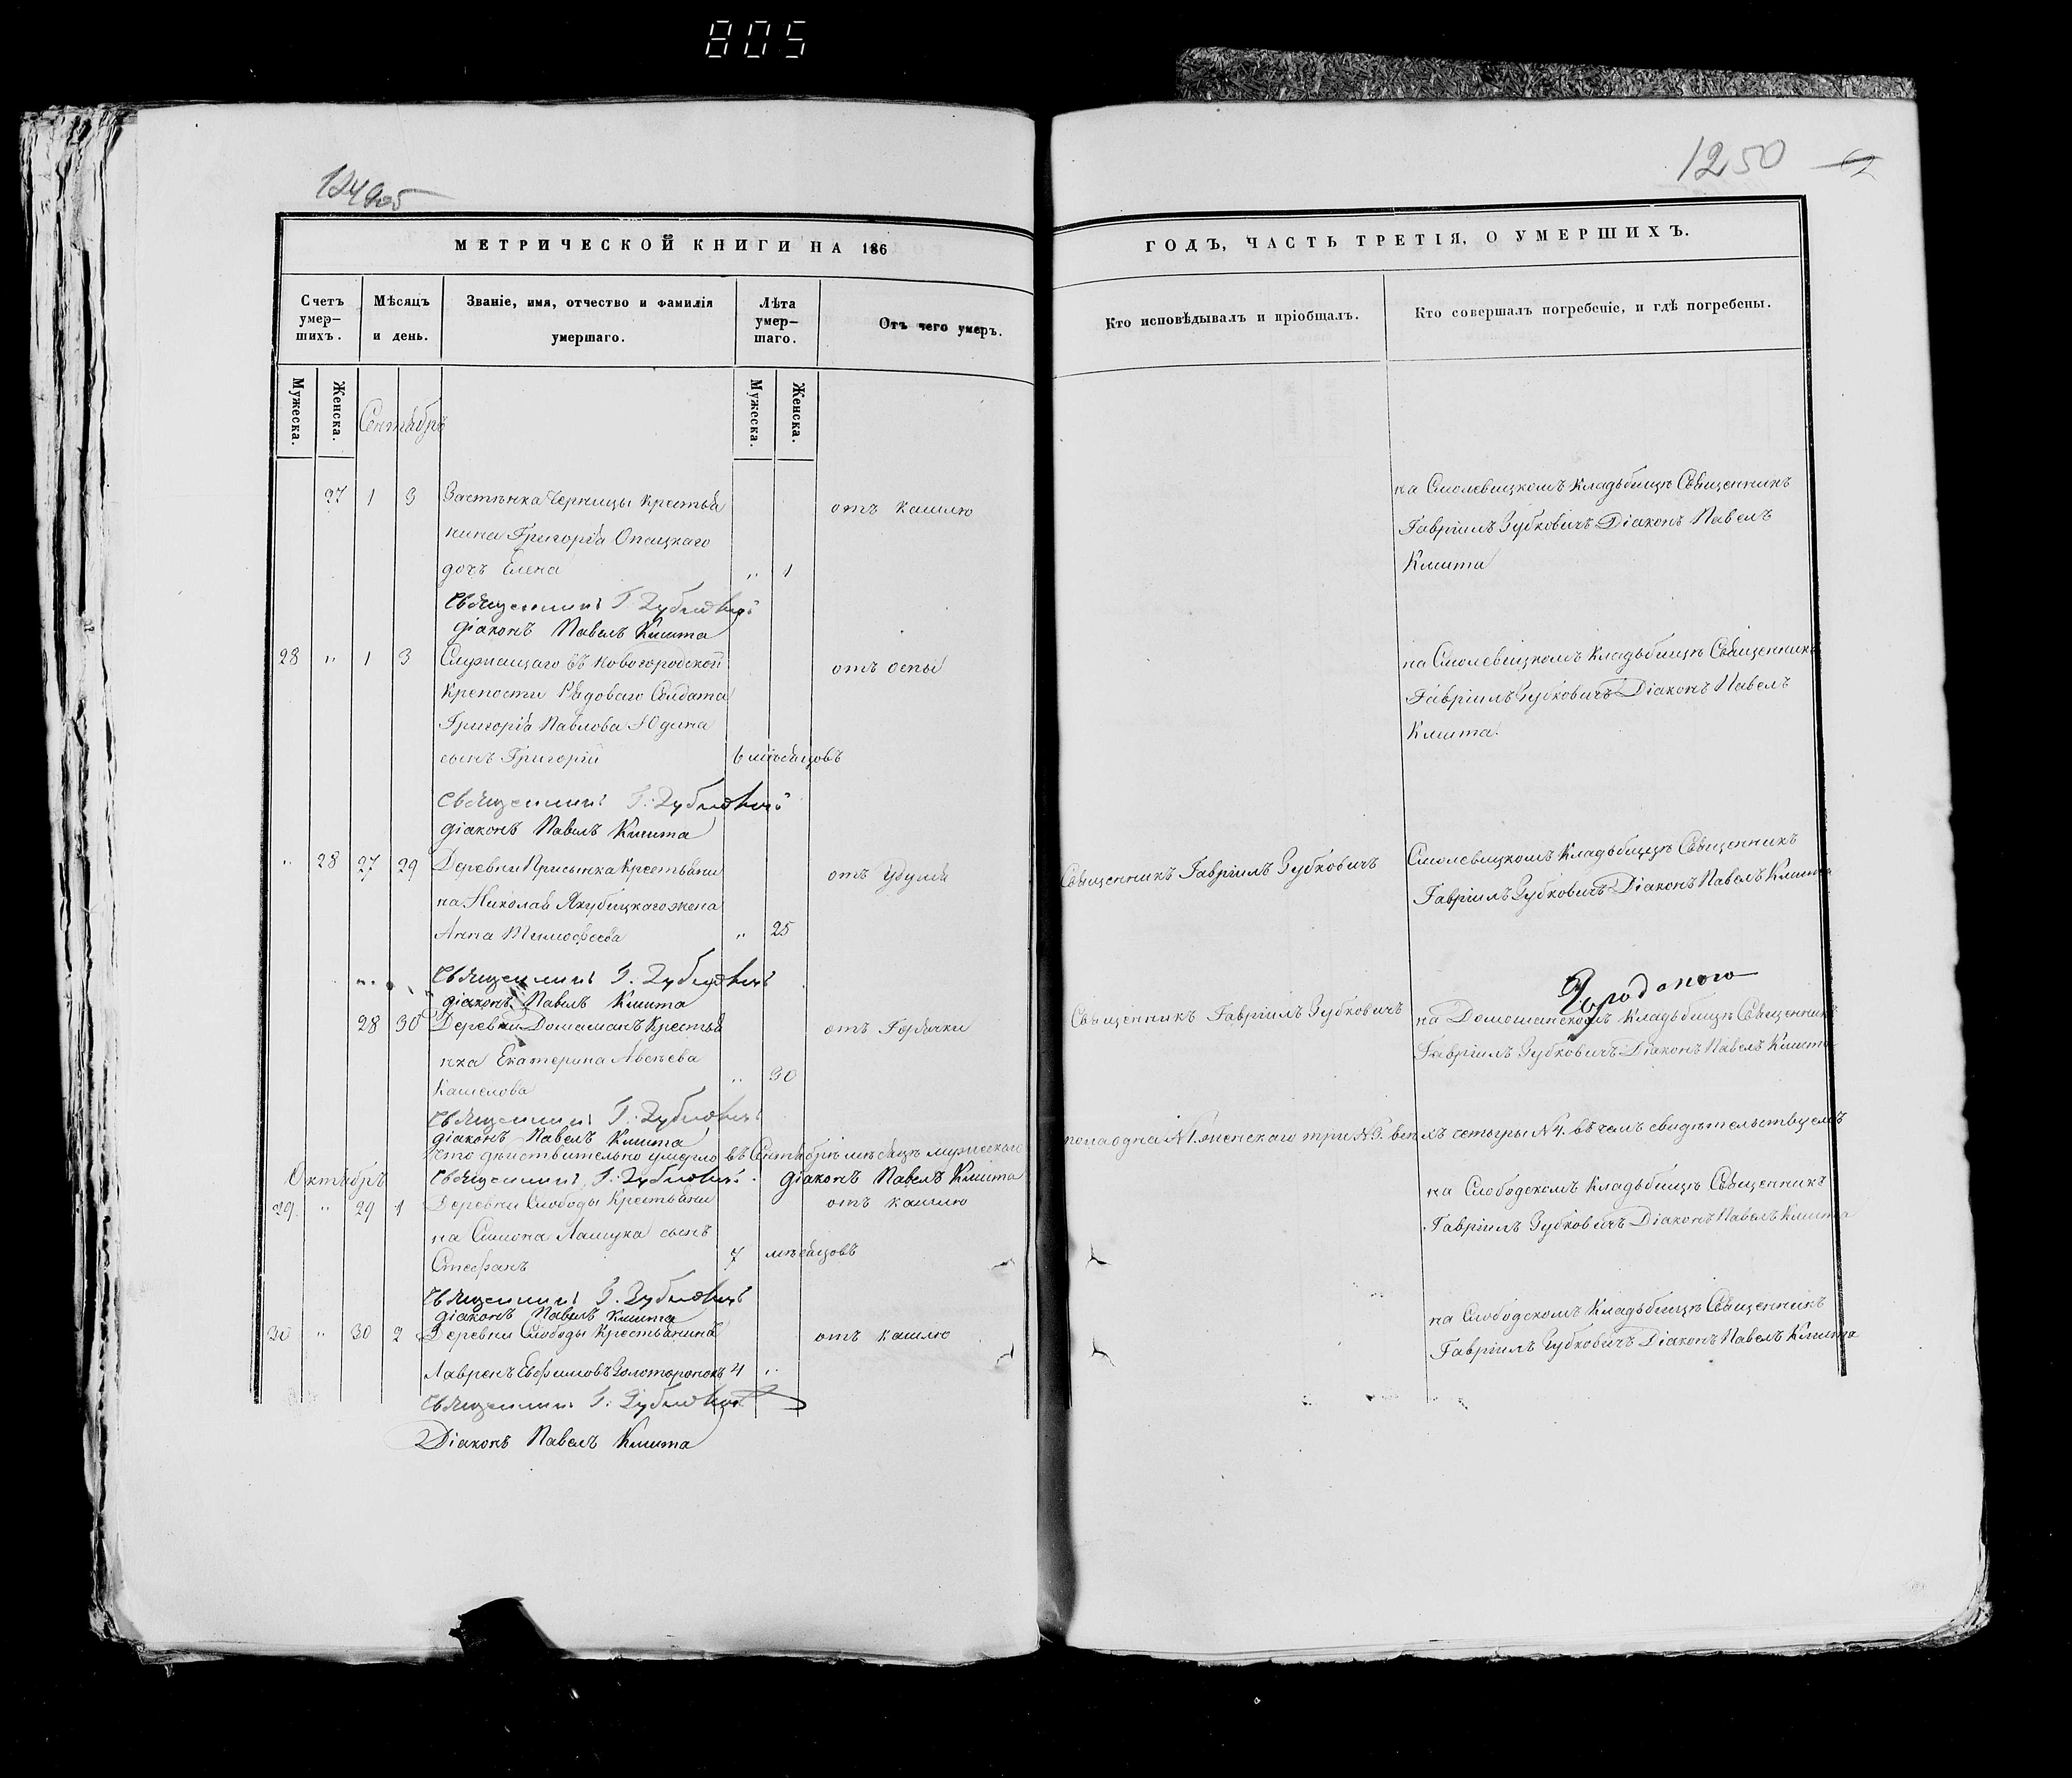 805
1249об
1250
62
МЕТРИЧЕСКОЙ КНИГИ НА 186
ГОДЪ, ЧАСТЬ ТРЕТІЯ, О УМЕРШИХЪ.
Счетъ умер-
шихъ.
Мѣсяцъ
и день.
Званіе, имя, отчество и фамилія
умершаго.
Лѣта
умер-
шаго.
Отъ чего умеръ.
Кто исповѣдывалъ и пріобщалъ.
Кто совершалъ погребеніе, и гдѣ погребены.
Мужеска.
Женска.
Мужеска.
Женска.
Сентябрь
27 1 3 Застѣнка Черницы Крестья
нина Григорія Опацкаго
дочь Елена „ 1
отъ кашлю
на Смолевицкомъ Кладьбищѣ Священникъ
Гавріилъ Зубковичъ Діаконъ Павелъ
Кмита
Священникъ Г. Зубковичъ
діаконъ Павелъ Кмита
28 „ 1 3 Служащаго въ Новогородской
Крепости Рядоваго Солдата
Григорія Павлова Юдина
сынъ Григорій 6 мѣсяцовъ
отъ оспы
на Смолевицкомъ Кладьбищѣ Священникъ
Гавріилъ Зубковичъ Діаконъ Павелъ
Кмита.
Священникъ Г. Зубковичъ
діаконъ Павелъ Кмита
„ 28 27 29 Деревни Присынка Крестьяни
на Николая Якубицкаго жена
Анна Тимофеева „ 25
Священникъ Гавріилъ Зубковичъ
Смолевицкомъ Кладьбищѣ Священникъ
Гавріилъ Зубковичъ Діаконъ Павелъ Кмита
Священникъ Г. Зубковичъ
діаконъ Павелъ Кмита
28 30 Деревни Домашанъ Крестья
нка Екатерина Авсѣева
Кашелова „ 30
отъ Горячки
Священникъ Гавріилъ Зубковичъ
на Домошанскомъ Кладьбищѣ Священникъ
Гавріилъ Зубковичъ Діаконъ Павелъ Кмита
Священникъ Г. Зубковичъ
діаконъ Павелъ Кмита
Что дѣйствительно умерло въ Сентябрѣ мѣсяцѣ мужескаго
пола одна N 1. женскаго три N 3. всѣхъ четыры N 4. въ чемъ свидѣтельствуемъ
Священникъ Г. Зубковичъ. діаконъ Павелъ Кмита
Октябрь
29. „ 29 1 Деревни Слободы Крестьяни
на Симона Лашука сынъ
Стефанъ 7 мѣсяцовъ
отъ кашлю
на Слободскомъ Кладьбищѣ Священникъ
Гавріилъ Зубковичъ Діаконъ Павелъ Кмита
Священникъ Г. Зубковичъ
діаконъ Павелъ Кмита
30 „ 30 2 Деревни Слободы Крестьянинъ
Лавренъ Евфимовъ 4 „
отъ кашлю
на Слободскомъ Кладьбищѣ Священникъ
Гавріилъ Зубковичъ Діаконъ Павелъ Кмита
Священникъ Г. Зубковичъ
Діаконъ Павелъ Кмита